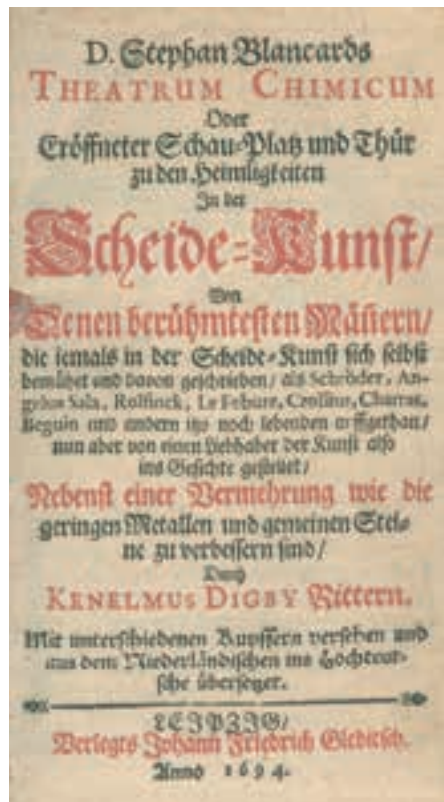 D. Stephan Blancards
THEATRUM CHIMICUM
Oder
Eröffneter Schau-Platz und Thür
zu den Heimligkeiten
In der
Scheide-Kunst/
Von
Denen berühmtesten Mäistern/
die iemals in der Scheide-Kunst sich selbst
bemühet und davon geschrieben/ als Schröder, An-
gelus Sala, Rolfinck, Le Febure, Crollius, Charras,
Beguin und andern itzo noch lebenden auffgethan/
nun aber von einen Liebhaber der Kunst also
ins Gesichte gestellet/
Nebenst einer Vermehrung wie die
geringen Metallen und gemeinen Stei-
ne zu verbessern sind/
Durch
KENELMUS DIGBY Rittern.
Mit unterschiedenen Kupffern versehen und
aus dem Niederländischen ins Hochteut-
sche übersetzet.
LEIPZIG/
Verlegts Johann Friedrich Gleditsch.
Anno 1694.